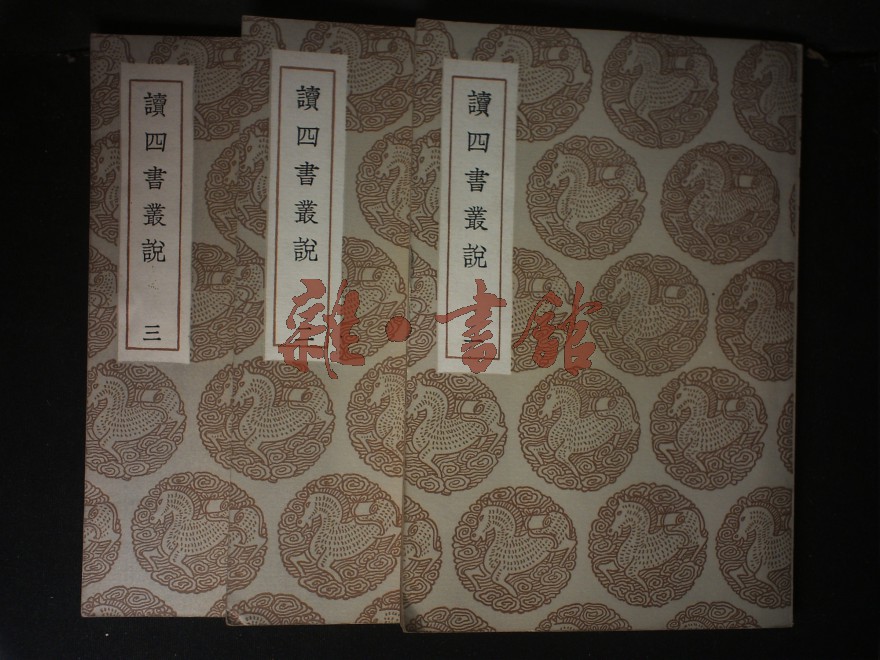 讀四書叢說
一
讀四書叢說
二
讀四書叢說
三
雜·書館